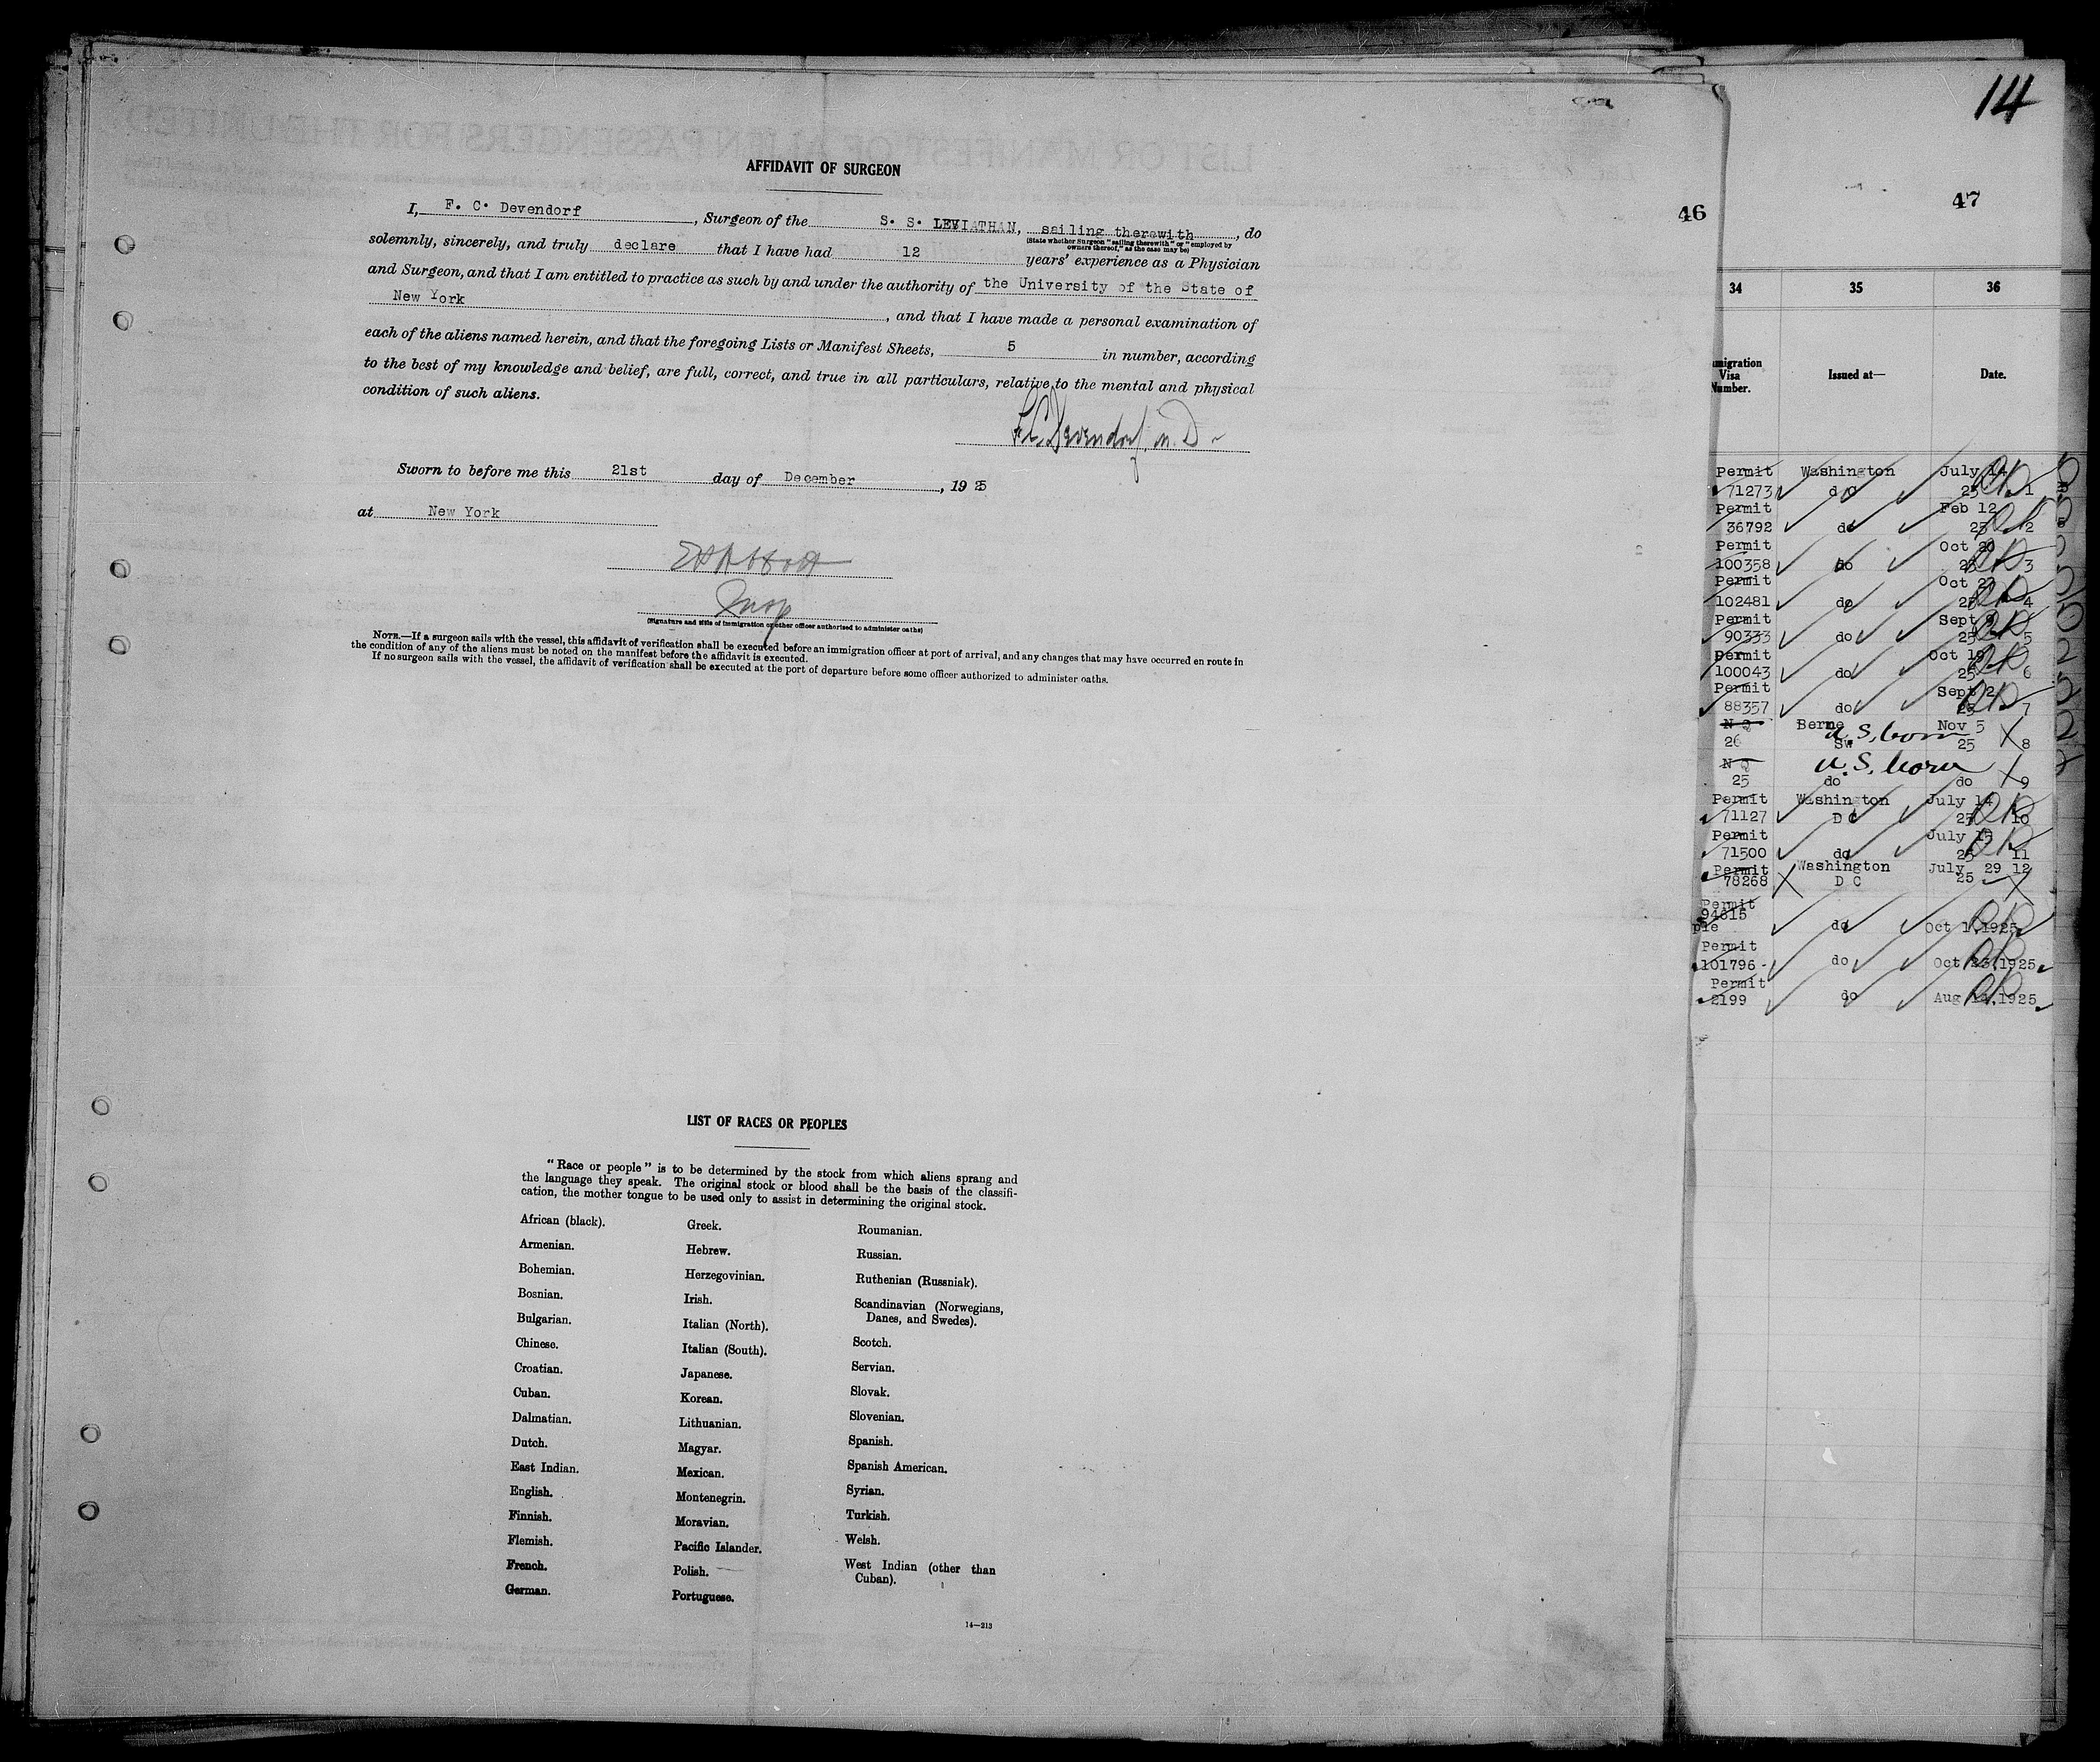 14
46
47
AFFIDAVIT OF SURGEON
I, F. C. Devendorf, Surgeon of the S. S. LEVIATHAN, sailing therewith, do
(State whether Surgeon "sailing therewith" or "employed by
owners thereof," as the case may be)
solemnly, sincerely, and truly declare that I have had 12 years' experience as a Physician
and Surgeon, and that I am entitled to practice as such by and under the authority of the University of the State of
New York, and that I have made a personal examination of
each of the aliens named herein, and that the foregoing Lists or Manifest Sheets, 5 in number, according
to the best of my knowledge and belief, are full, correct, and true in all particulars, relative to the mental and physical
condition of such aliens.
F.C. Devendorf, M. D.
Sworn to before me this 21st day of December, 1925
at New York
Insp
(Signature and title of immigration or other officer authorized to administer oaths)
NOTE.—If a surgeon sails with the vessel, this affidavit of verification shall be executed before an immigration officer at port of arrival, and any changes that may have occurred en route in
the condition of any of the aliens must be noted on the manifest before the affidavit is executed.
If no surgeon sails with the vessel, the affidavit of verification shall be executed at the port of departure before some officer authorized to administer oaths.
LIST OF RACES OR PEOPLES
"Race or people" is to be determined by the stock from which aliens sprang and
the language they speak. The original stock or blood shall be the basis of the classifi-
cation, the mother tongue to be used only to assist in determining the original stock.
African (black).
Armenian.
Bohemian.
Bosnian.
Bulgarian.
Chinese.
Croatian.
Cuban.
Dalmatian.
Dutch.
East Indian.
English.
Finnish.
Flemish.
French.
German.
Greek.
Hebrew.
Herzegovinian.
Irish.
Italian (North).
Italian (South).
Japanese.
Korean.
Lithuanian.
Magyar.
Mexican.
Montenegrin.
Moravian.
Pacific Islander.
Polish.
Portuguese.
Roumanian.
Russian.
Ruthenian (Russniak).
Scandinavian (Norwegians,
Danes, and Swedes).
Scotch.
Servian.
Slovak.
Slovenian.
Spanish.
Spanish American.
Syrian.
Turkish.
Welsh.
West Indian (other than
Cuban).
14—213
34 35 36
migration
Visa
Number.
Issued at—
Date.
Permit Washington July 14
71273 d C 25 1
Permit Feb 12
36792 do 25 2
Permit Oct 20
100358 do 25 3
Permit Oct 27
102481 do 25 4
Permit Sept 9
90333 do 25 5
Permit Oct 19
100043 do 25 6
Permit Sept 2
88357 do 25 7
N Q Berne Nov 5
U.S. born
26 Sw 25 8
N Q U.S. born
25 do do 9
Permit Washington July 14
71127 D C 25 10
Permit July 15
71500 do 25 11
Permit Washington July 29 12
78268 D C 25
Permit
94615
ple do Oct 1,1925
Permit
101796 do Oct 23,1925
Permit
2199 do Aug 14,1925